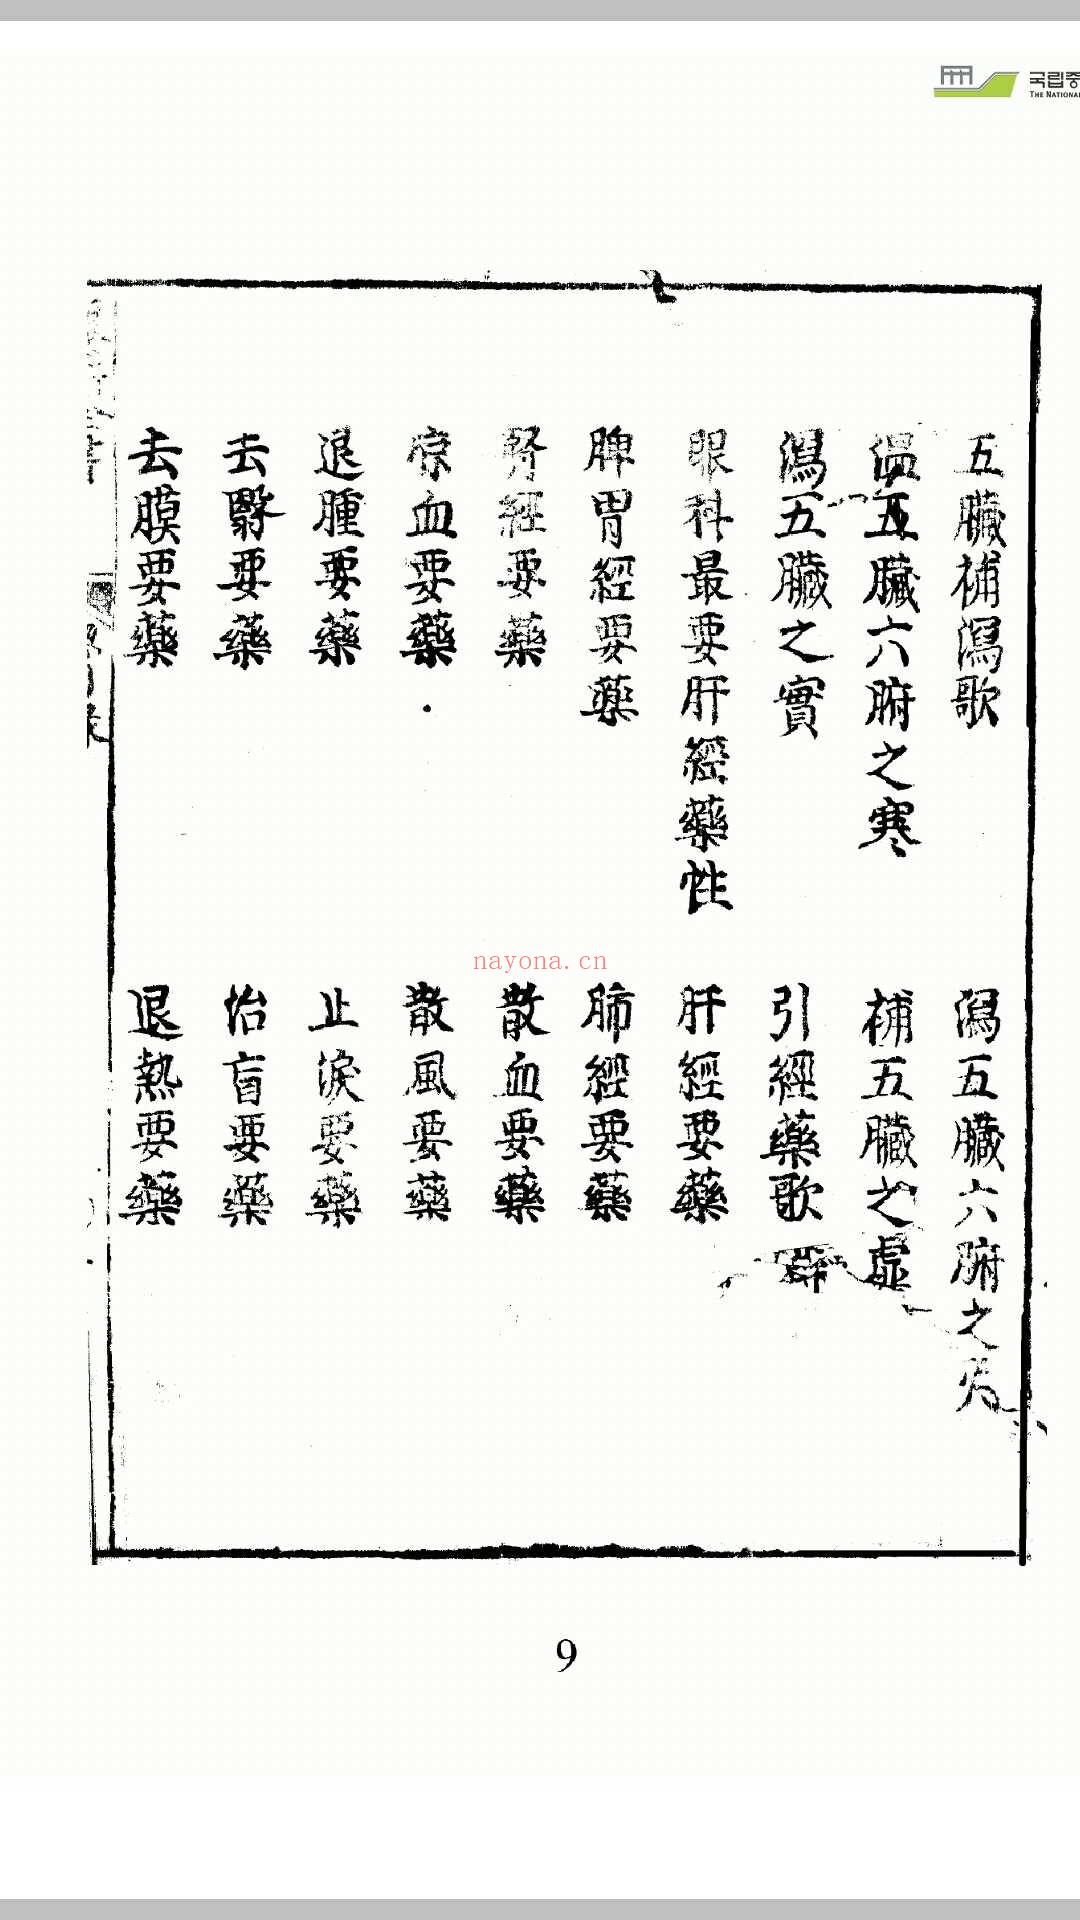 국립중
THE NATIONAL
五臟補瀉歌
瀉五臟六腑之火
溫五臟六腑之寒
補五臟之虛
瀉五臟之實
引經藥歌
眼科最要肝經藥性
肝經要藥
脾胃經要藥
肺經要藥
腎經要藥
散血要藥
凉血要藥
散風要藥
退腫要藥
止淚要藥
去翳要藥
治盲要藥
去膜要藥
退熱要藥
書
目錄
nayona.cn
9